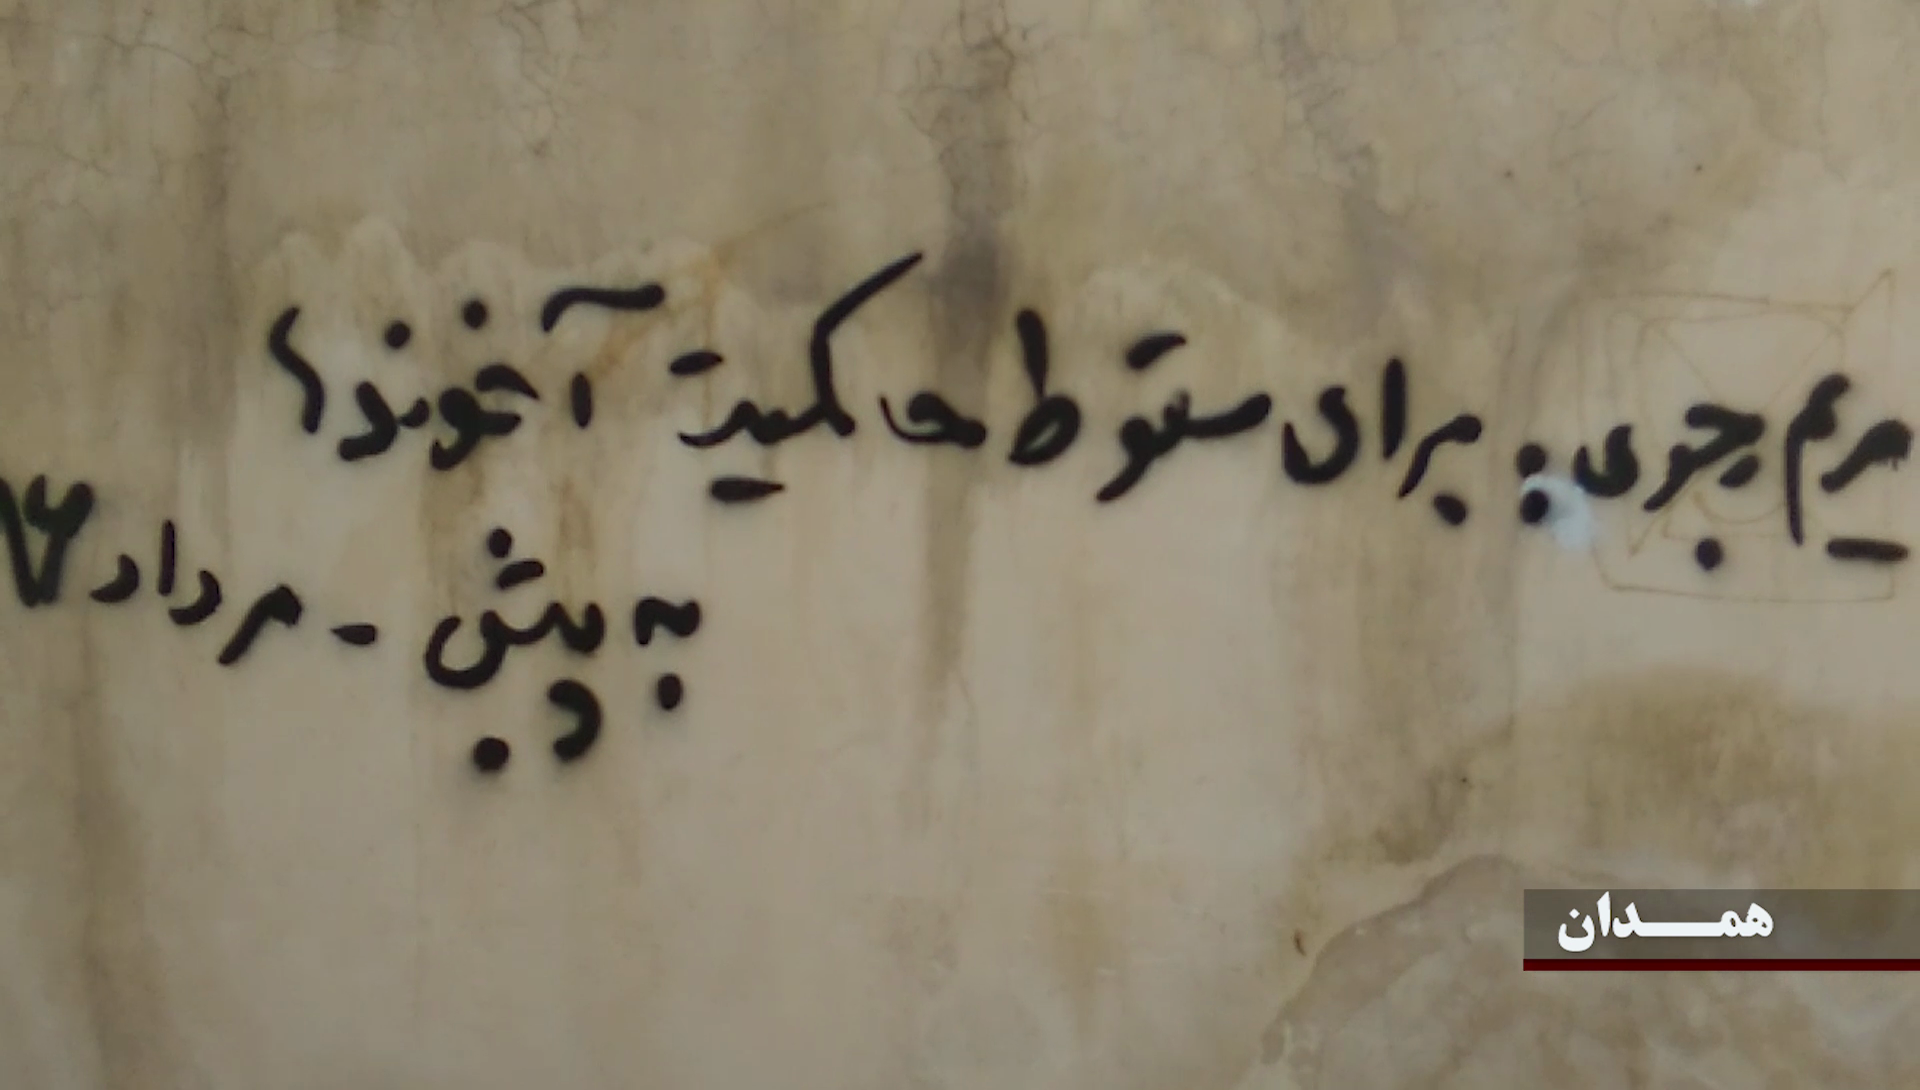 مریم رجوی: برای سقوط حاکمیت آخوندها
به پیش - مرداد ۹۷
همدان